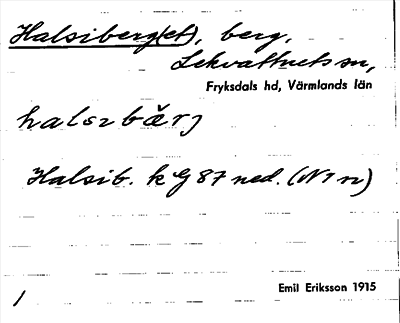 Halsiberg(et), berg,
Lekvattnets sn,
Fryksdals hd, Värmlands län
halsıbärj
Halsib. k G 87 ned. (N 1 n)
Emil Eriksson 1915
1